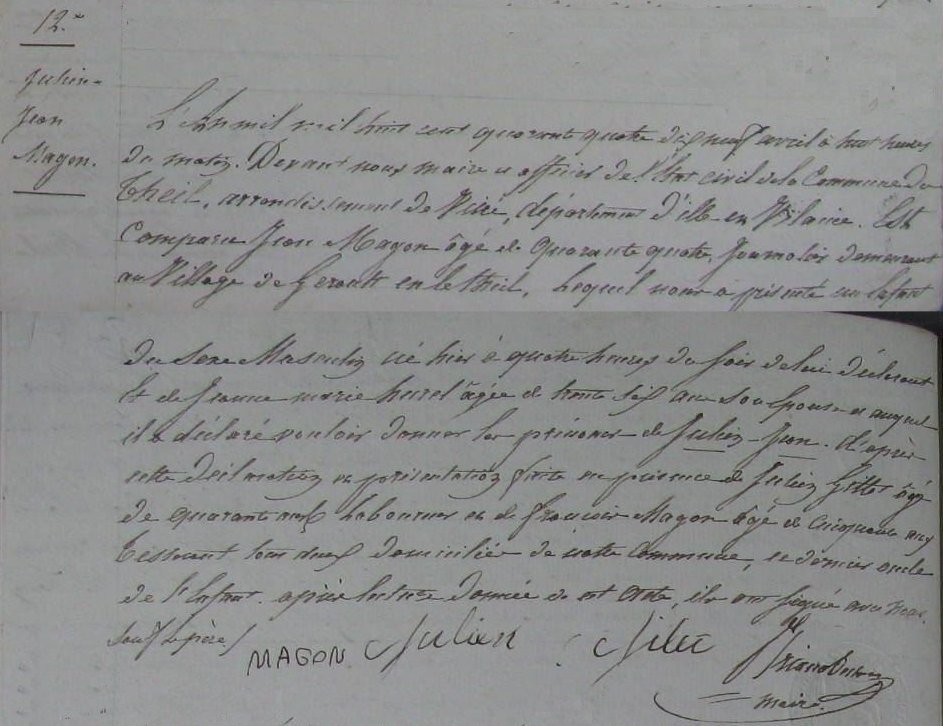 12.e
Julien-
Jean
Magon.
L'An mil mil huit cent quarante quatre dix neuf avril à huit heures
du matin. Devant nous maire et officier de l'Etat civil de la Commune du
Theil, arrondissement de Vitré, département d'ille et Vilaine. Est
Comparu Jean Magon âgé de quarante quatre, journalier demeurant
au Village de Gerault en le theil, Lequel nous a présenté un Enfant
du sexe Masculin né hier à quatre heures du soir de lui déclarant
Et de Jeanne marie hurel âgée de trente six ans son Epouse et auquel
il a déclaré vouloir donner les prénoms de Julien-Jean. d'après
cette déclaration et présentation faite en présence de Julien âgé
de quarante ans Laboureur et de françois Magon âgé de cinquante ans
Tisserant tous deux domiciliés de notre Commune, ce dernier oncle
de l'Enfant. après lecture donnée de cet Acte, ils ont signé avec nous
sauf le père/
MAGON Julien
maire